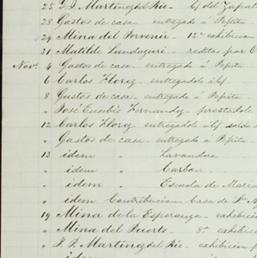 25 J. R. Martinez del Rio - lf del Zapat
28 Gastos de casa entregado á Pepita
29 Mina del Porvenir - 12ª exhibicion
31 Matilde - reditos por O
Novr. 4 Gastos de casa - entregado á Pepita
6 Carlos Florez - entregadole á lf
8 Gastos de casa - entregado á Pepita
" José Eusebio Fernandez - prestadole
12 Carlos Florez entregadole á lf saldo
" Gastos de casa entregado á Pepita
13 idem " Lavandera
" idem " Carbon
" idem " Escuela de
" idem Contribucion Casa de
19 Mina de la Esperanza - exhibicion
" Mina del Puerto - 8ª exhibicion
" J. R. Martinez del Rio - exhibicion
idem